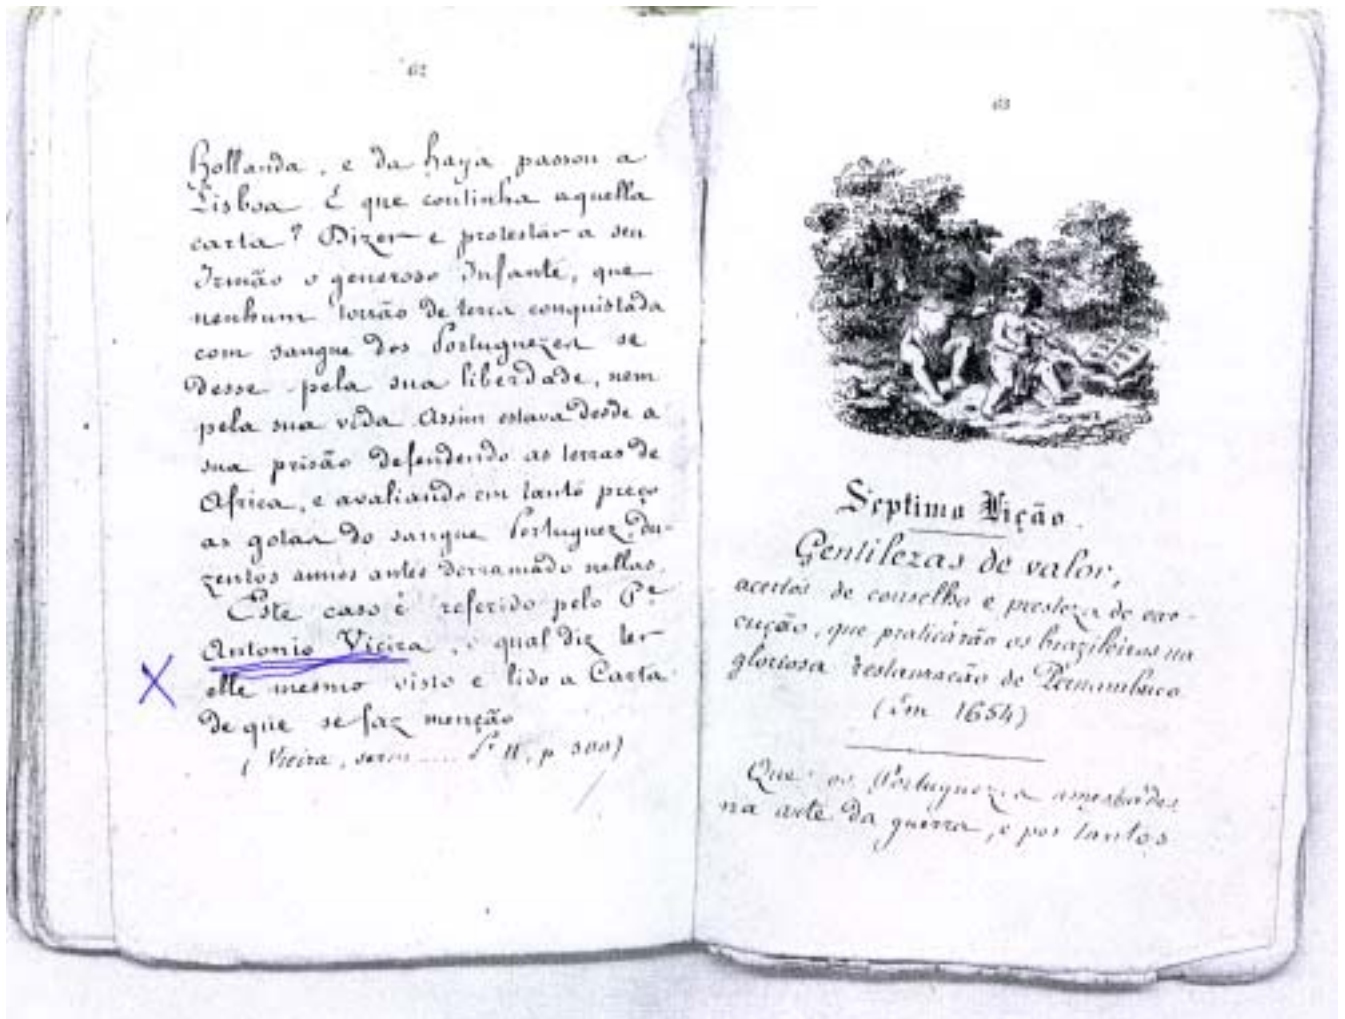 62
Hollanda, e da haya passou a
Lisboa E que continha aquella
carta? Dizer e protestar a seu
Irmão o generoso Infante, que
nenhum torrão de terra conquistada
com sangue dos Portuguezes se
desse pela sua liberdade, nem
pela sua vida Assim estava desde a
sua prisão defendendo as terras de
Africa, e avaliando em tanto preço
as gotas do sangue Portuguez, du-
zentos annos antes derramado nellas.
Este caso é referido pelo Pe
Antonio Vieira, o qual diz ter
elle mesmo visto e lido a Carta
de que se faz menção
(Vieira, serm .... P. 11, p 300)
63
Septima Lição.
Gentilezas de valor,
acertos de conselho e presteza de exe-
cução, que praticárão os brazileiros na
gloriosa restauração de Pernambuco
(Em 1654)
Que os Portuguezes amestrados
na arte da guerra, e por tantos